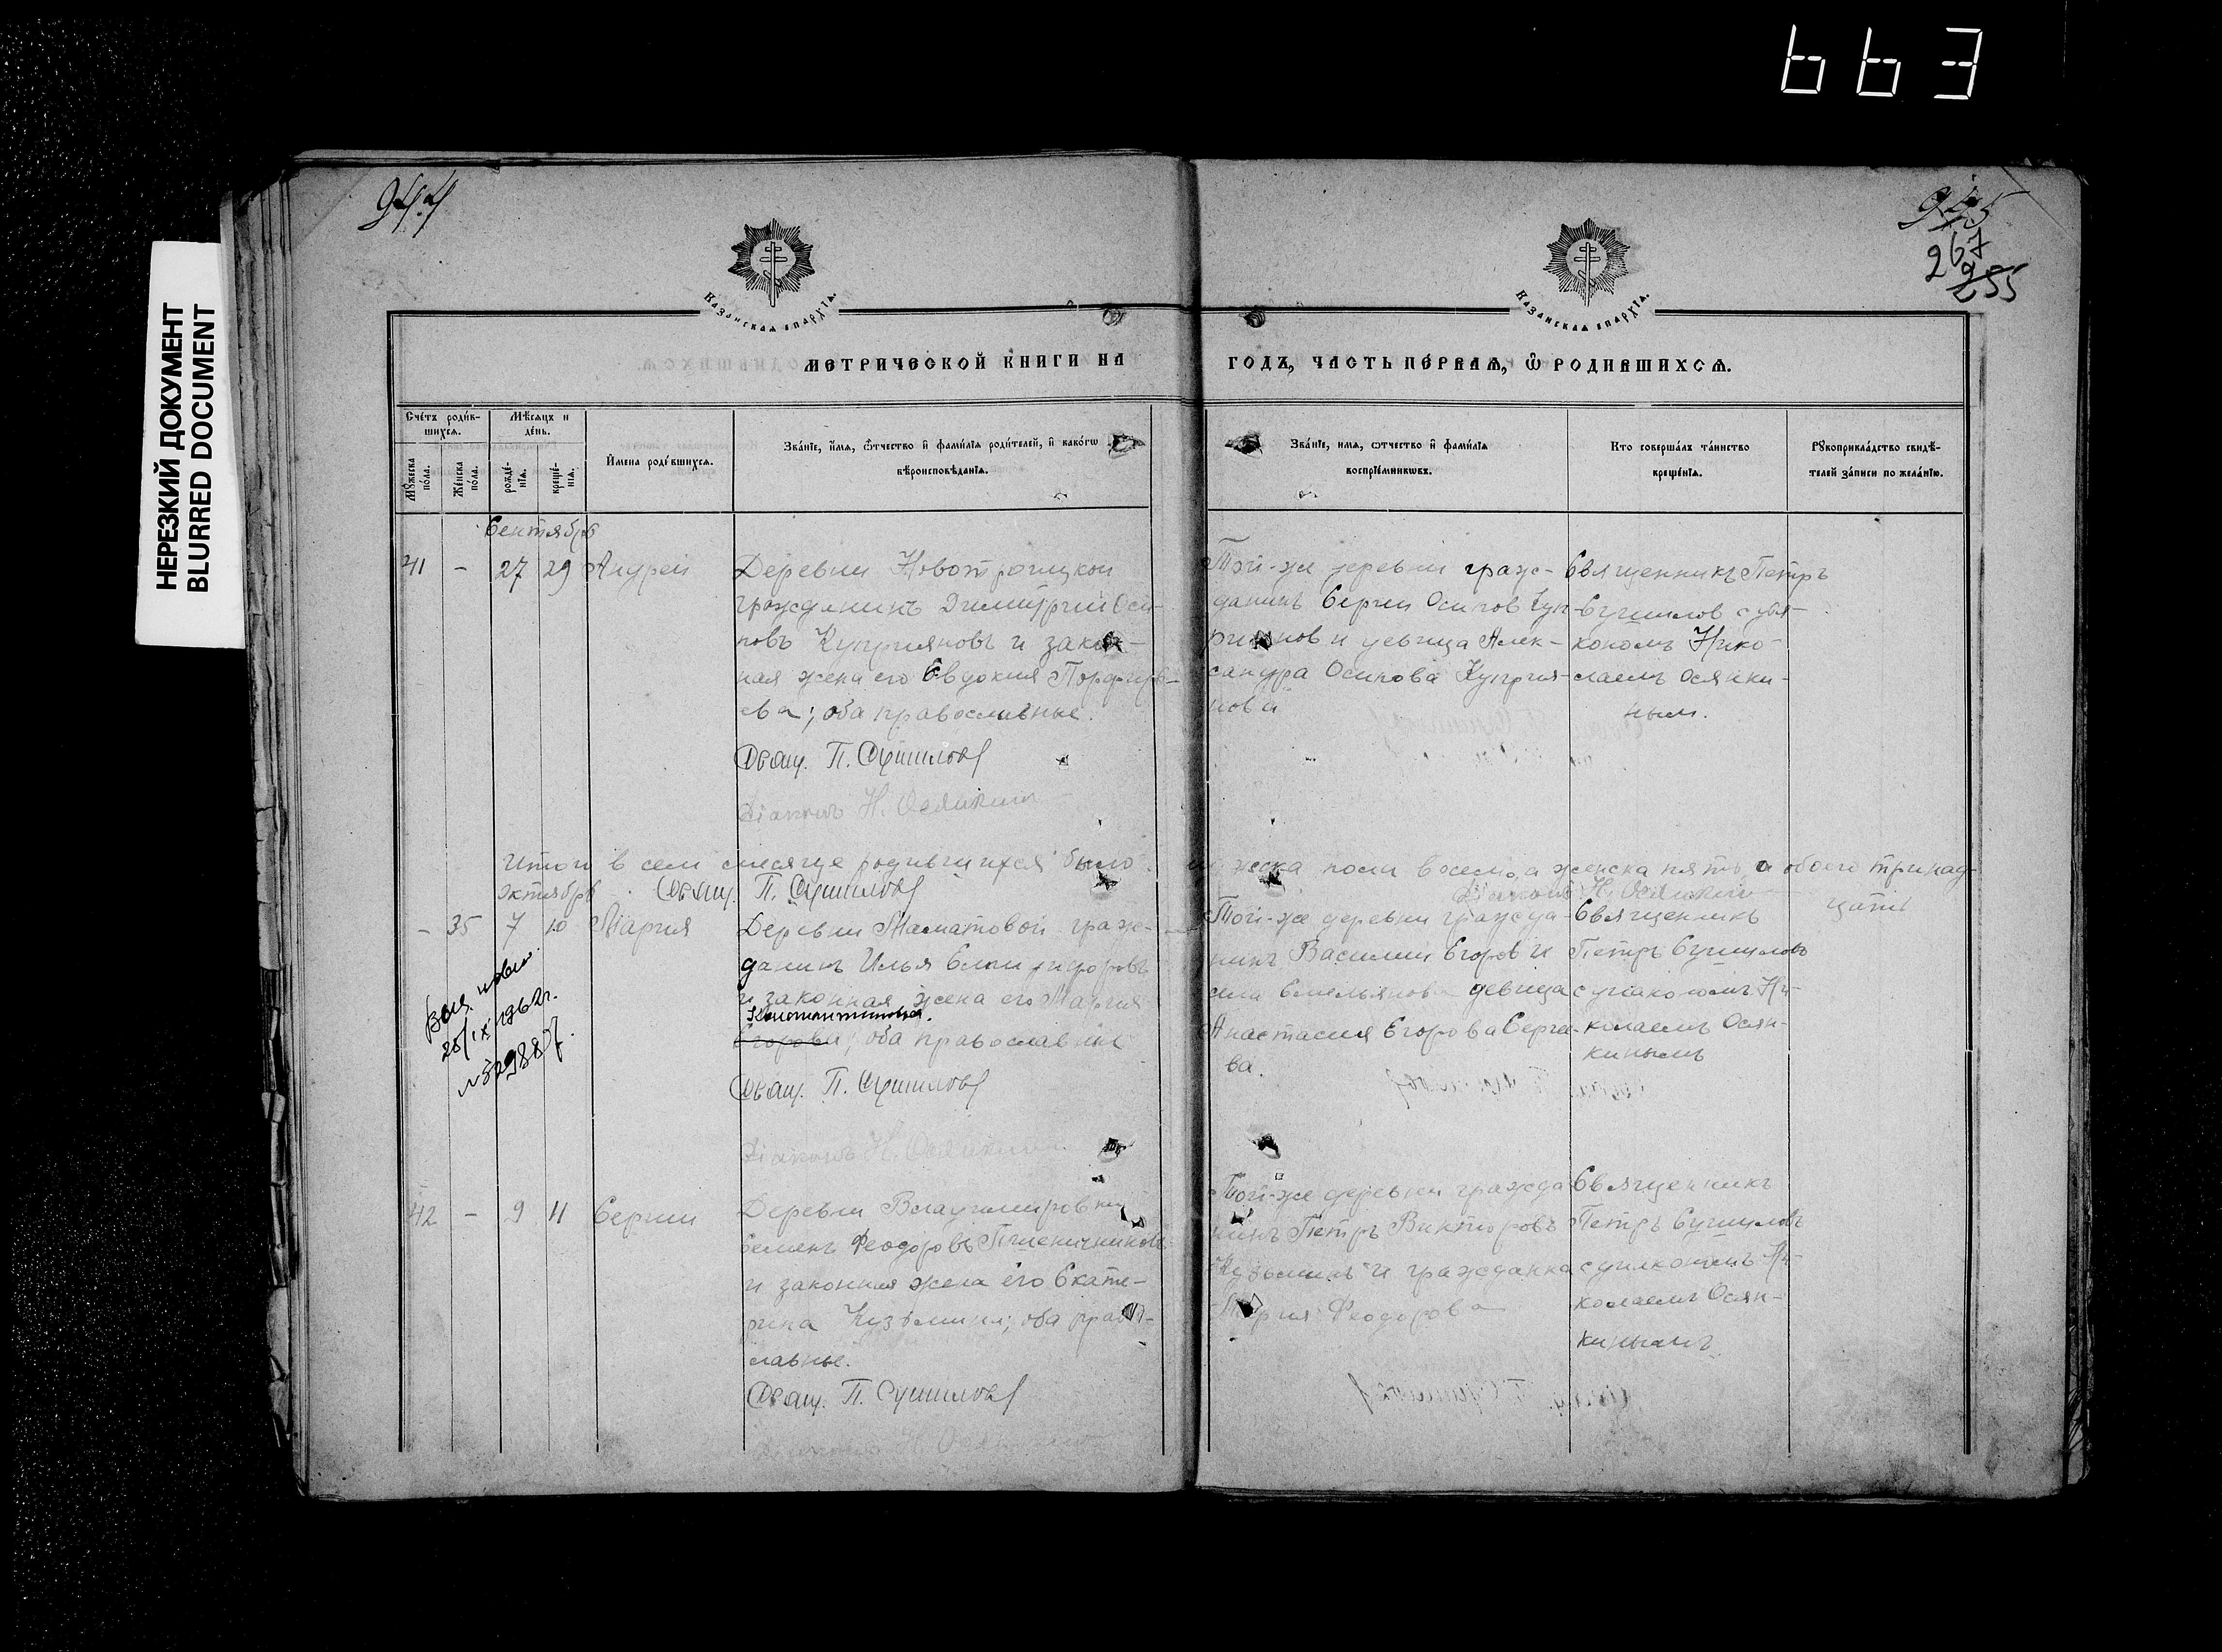 663
НЕРЕЗКИЙ ДОКУМЕНТ
BLURRED DOCUMENT
944
945
267
255
Казанская епархія.
Казанская епархія.
МЕТРИЧЕСКОЙ КНИГИ НА
ГОДЪ, ЧАСТЬ ПЕРВАЯ, Ѿ РОДИВШИХСЯ.
Счетъ родив-
шихся.
Мꙋжеска пола.
Женска пола.
Мѣсяцъ и
день.
рожде-
нія.
креще-
нія.
Имена родившихся.
Званіе, имя, ѿчество и фамилія родителей, и какогѡ
вѣроисповѣданія.
Званіе, имя, ѿчество и фамилія
воспріемникѡвъ.
Кто совершалъ таинство
крещенія.
Рꙋкоприкладство свидѣ-
телей записи по желанію.
Сентябрь
41 - 27 29 Андрей
Деревни Новотроицкой
гражданинъ Димитрий Оси-
повъ Куприяновъ и закон-
ная жена его Евдокия Порфирь-
ева; оба православные.
Свящ. П. Сушиловъ
Діаконъ Н. Осянкин
Той-же деревни граж-
данинъ Сергей Осипов Куп-
риянов и девица Алек-
сандра Осипова Куприя-
нова
Священникъ Петръ
Сушилов с диа-
кономъ Нико-
лаемъ Осянки-
ным.
Итого в сем месяце родившихся было
жеска пола восемь, а женска пять, а обоего тринад-
цать
Октябрь
Свящ. П. Сушиловъ
Діаконъ Н. Осянкин
- 35 7 10 Мария
Деревни Маматовой граж-
данинъ Илья Спиридоновъ
и законная жена его Мария
Константинова.
Егорова; оба православные
Свящ. П. Сушиловъ
Діаконъ Н. Осянкин
25/IX 1962г.
Той-же деревни гражда-
нинъ Василий Егоров и
Емельянова девица
Анастасия Егорова Серге-
ва.
Священникъ
Петръ Сушиловъ
с диакономъ Ни-
колаемъ Осян-
кинымъ
42 - 9 11 Сергий
Деревни Владимировки
Семенъ Феодоровъ Пшеничников
и законная жена его Екате-
рина Кузьмина; оба право-
лавные.
Свящ. П. Сушиловъ
Діаконъ Н. Осянкин
Той-же деревни гражда
нинъ Петръ Викторовъ
Кузьминъ и гражданка
Мария Феодорова
Священникъ
Петръ Сушиловъ
с диакономъ Ни-
колаемъ Осян-
кинымъ